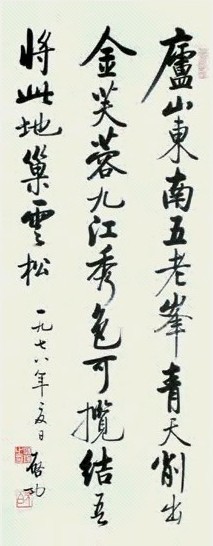 廬山東南五老峯青天削出
金芙蓉九江秀色可攬結吾
將此地巢雲松
一九七八年夏日 啓功